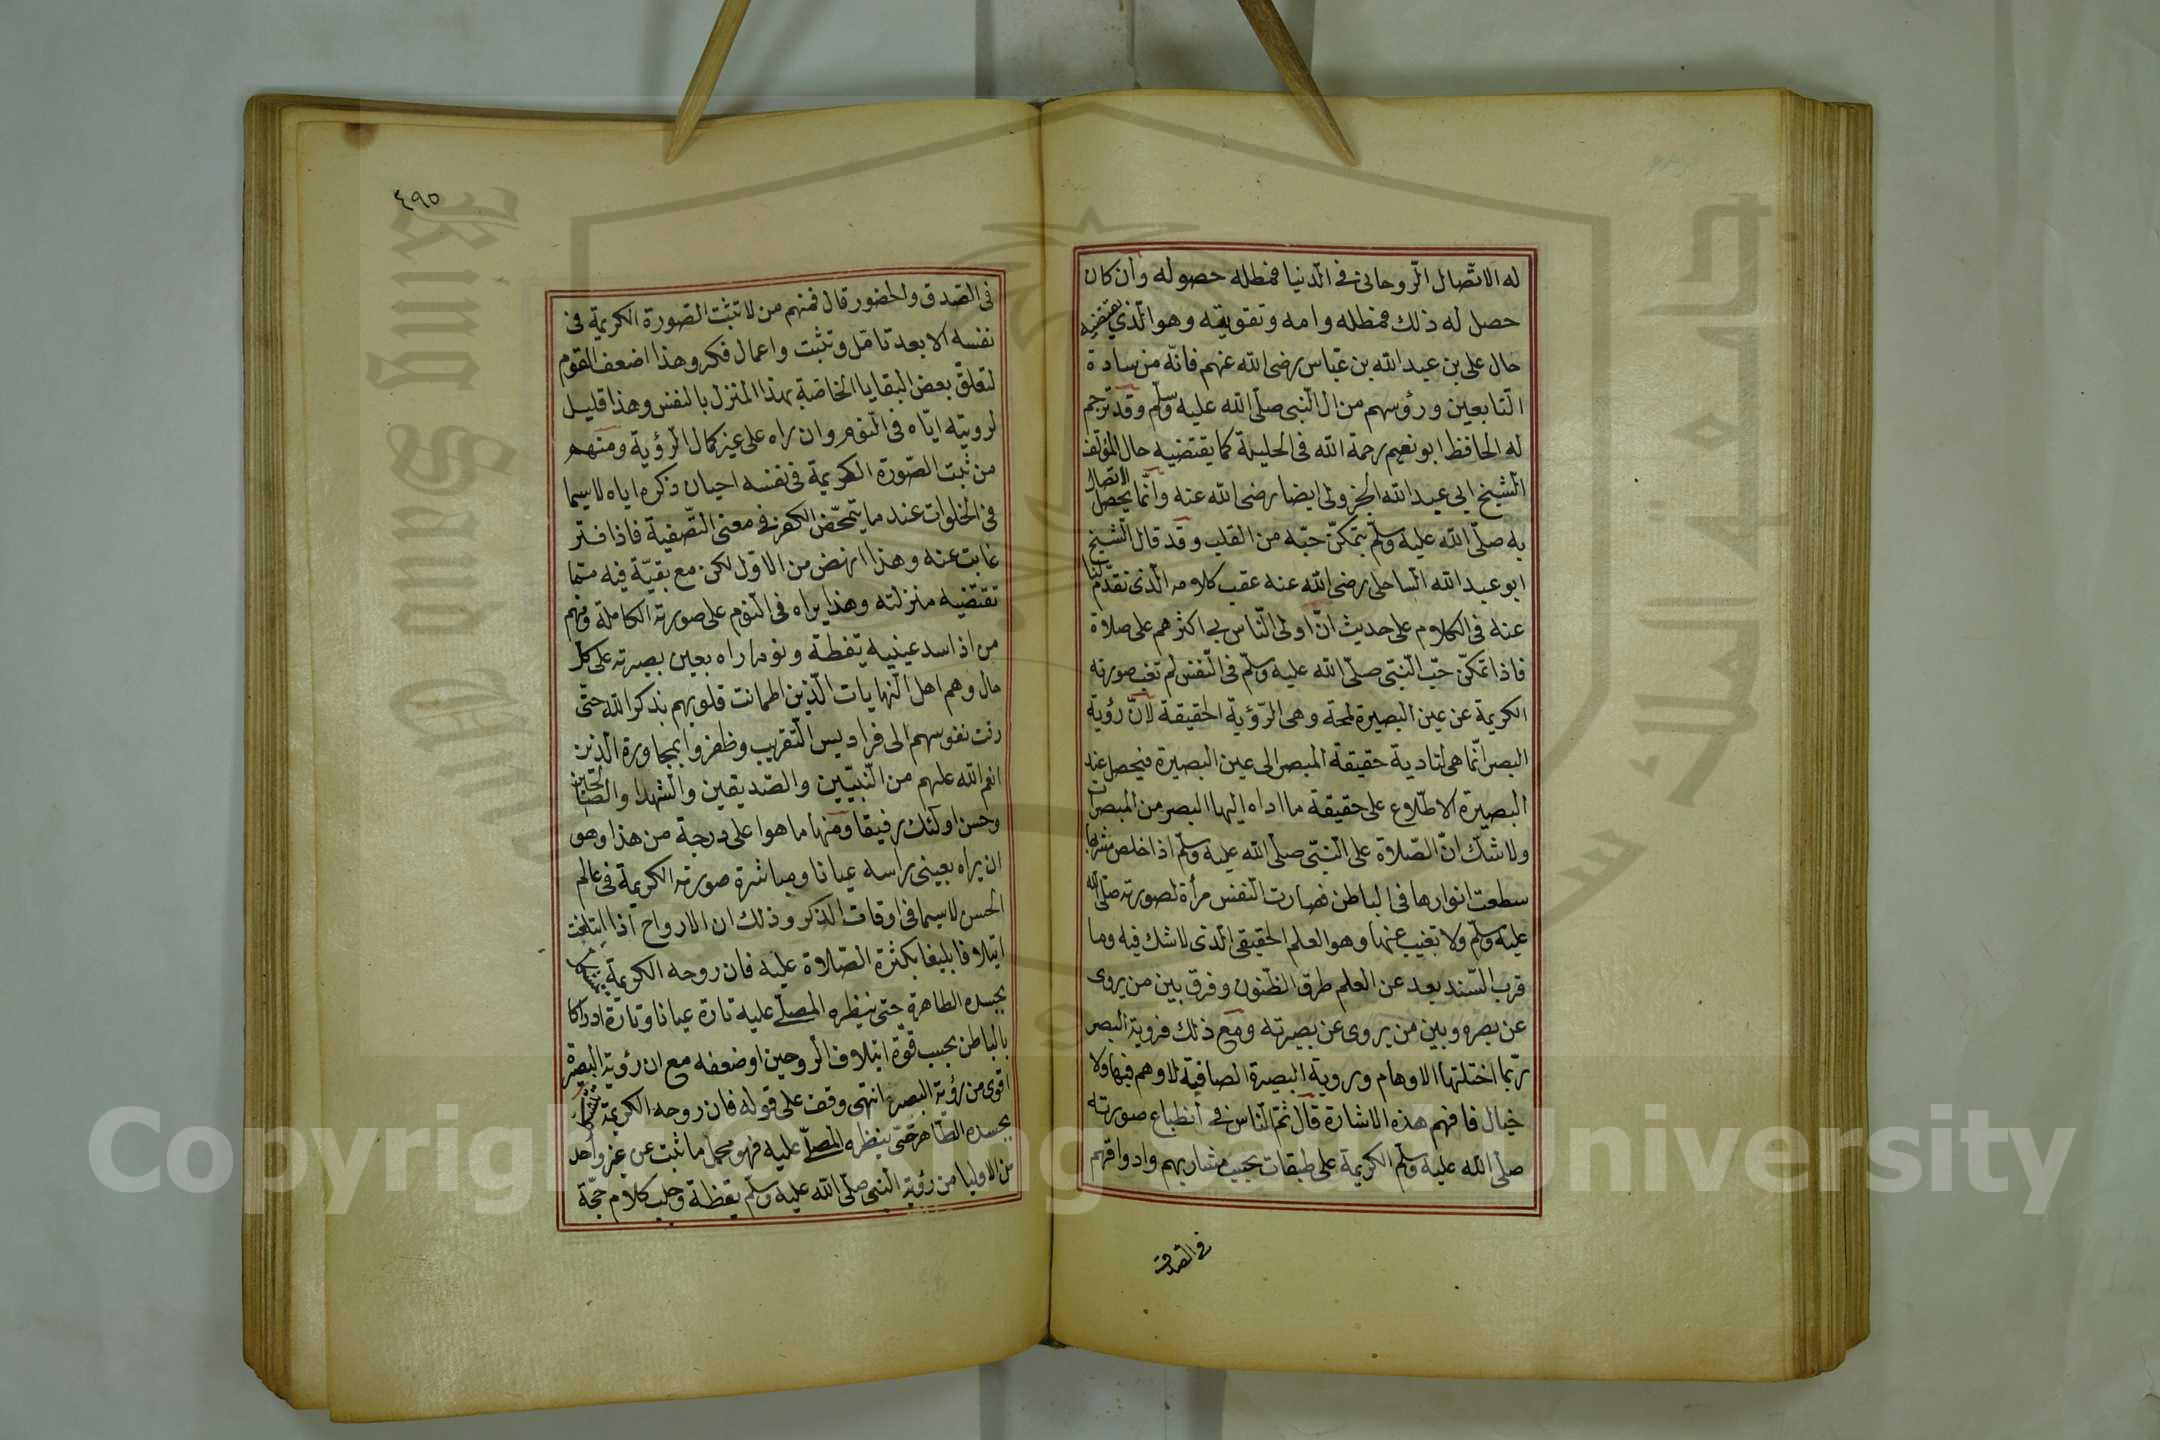 له الاتّصال الرّوحاني في الدّنيا فمطلبه حصوله وان كان
حصل له ذلك فمطلبه دوامه وتقويته وهو الّذي يقتضيه
حال على بن عبد الله بن عبّاس رضى الله عنهم فانّه من سادة
التّابعين ورؤسهم من ال النّبى صلّى الله عليه وسلّم وقد ترجم
له الحافظ ابو نعيم رحمة الله فى الحلية كما يقتضيه حال المؤلّف
الشّيخ ابى عبد الله الجزولى ايضا رضى الله عنه وانّما يحصل الاتصال
به صلّى الله عليه وسلّم بتمكّن حبّه من القلب وقد قال الشّيخ
ابو عبد الله السّاحلى رضى الله عنه عقب كلامه الّذى تقدّم لنا
عنه فى الكلام على حديث انّ اولى النّاس بى اكثرهم على صلاة
فاذا تمكّن حبّ النّبىّ صلّى الله عليه وسلّم فى النّفس لم تغب صورته
الكريمة عن عين البصيرة لمحة وهى الرّؤية الحقيقة لانّ رؤية
البصر انّما هى لتادية حقيقة المبصر الى عين البصيرة فيحصل عند
البصيرة الاطّلاع على حقيقة ما اداه اليها البصر من المبصرات
ولا شكّ انّ الصّلاة على النّبىّ صلّى الله عليه وسلّم اذا خلص مشربها
سطعت انوارها فى الباطن فصارت النّفس مرأة لصورته صلّى الله
عليه وسلّم ولا تغيب عنها وهو العلم الحقيقى الّذى لا شك فيه وما
قرب السّند بعد عن العلم طرق الظّنون وفرق بين من يروى
عن بصره وبين من يروى عن بصيرته ومع ذلك فروية البصر
ربّما اختلتها الاوهام وروية البصيرة الصافية لا وهم فيها ولا
خيال فافهم هذه الاشارة قال ثمّ النّاس في انطباع صورته
صلّى الله عليه وسلّم الكريمة على طبقات بحسب مشاربهم واذواقهم
في الصدق
٤٩٥
فى الصّدق والحضور قال فمنهم من لا تثبت الصّورة الكريمة فى
نفسه الا بعد تامّل وتثبت واعمال فكر وهذا اضعف القوم
لتعلّق بعض البقايا الخاصّة بهذا المنزل بالنفس وهذا قليل
لرويته ايّاه فى النّوم وان راه على غير كمال الرّؤية ومنهم
من ثبت الصّورة الكريمة فى نفسه احيان ذكره اياه لا سيما
فى الخلوات عند ما يتمحّض الكفر في معنى التّصفية فاذا فتّر
غابت عنه وهذا انهض من الاوّل لكن مع بقيّة فيه ممّا
تقتضيه منزلته وهذا يراه فى النّوم على صورته الكاملة ومنهم
من اذا سد عينيه يقظة ونوما راه بعين بصيرته على كل
حال وهم اهل النّهايات الّذين اطمانت قلوبهم بذكر الله حتّى
رقت نفوسهم الى فراديس التّقريب وظفروا بمجاورة الّذين
انعم الله عليهم من النّبيّين والصّديقين والشّهدا والصّالحين
وحسن اولئك رفيقا ومنها ما هوا على درجة من هذا وهو
ان يراه بعينى راسه عيانا ومباشرة صورته الكريمة فى عالم
الحسن لا سيما فى اوقات الذكر وذلك ان الارواح اذا ايتلفت
ايتلافا بليغا بكثرة الصّلاة عليه فان روحه الكريمة
بجسده الطاهرة حتى ينظره المصلّى عليه تارة عيانا وتارة ادراكا
بالباطن بحسب قوّة ايتلاف الروحين او ضعفه مع ان رؤية البصيرة
اقوى من رؤية البصر انتهى وقف على قوله فان روحه الكريمة
بجسده الطّاهر حتّى ينظره المصلّى عليه فهو محمل ما ثبت عن غير واحد
من الاوليا من رؤية النبى صلّى الله عليه وسلّم يقظة وجلب كلام حجّة
King Saud University
جامعة الملك سعود
Copyright © King Saud University